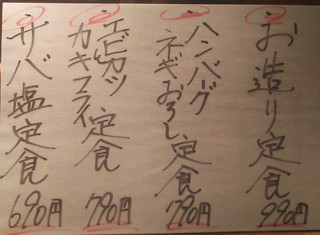 お造り定食 990円
ハンバーグ
ネギおろし定食 790円
エビカツ
カキフライ定食 790円
サバ塩定食 690円